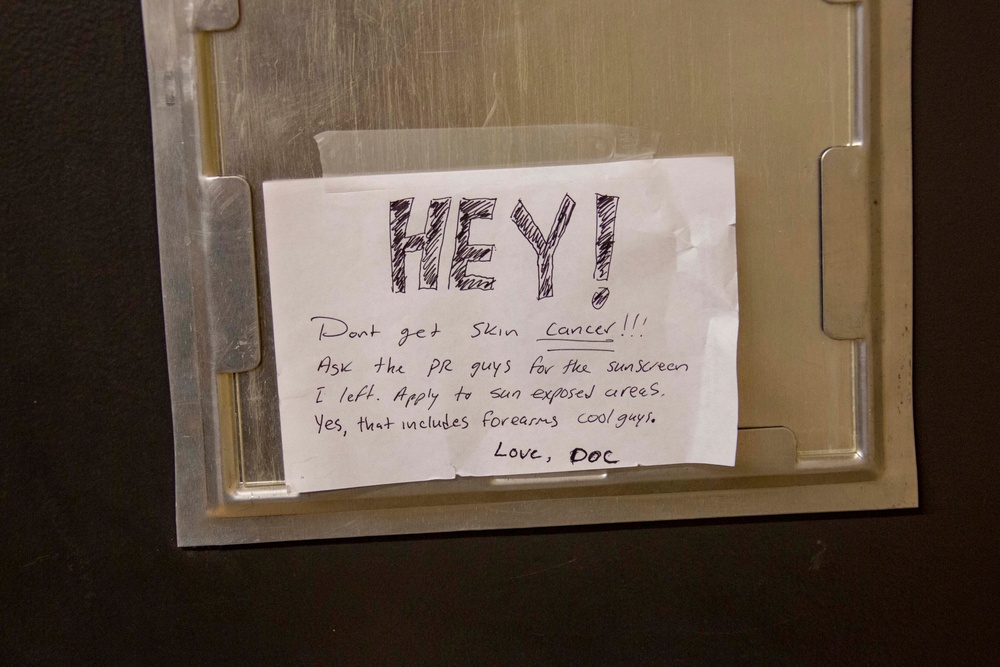 HEY!
Dont get skin cancer!!!
Ask the PR guys for the sunscreen
I left. Apply to sun exposed areas.
Yes, that includes forearms cool guys.
Love, DOC